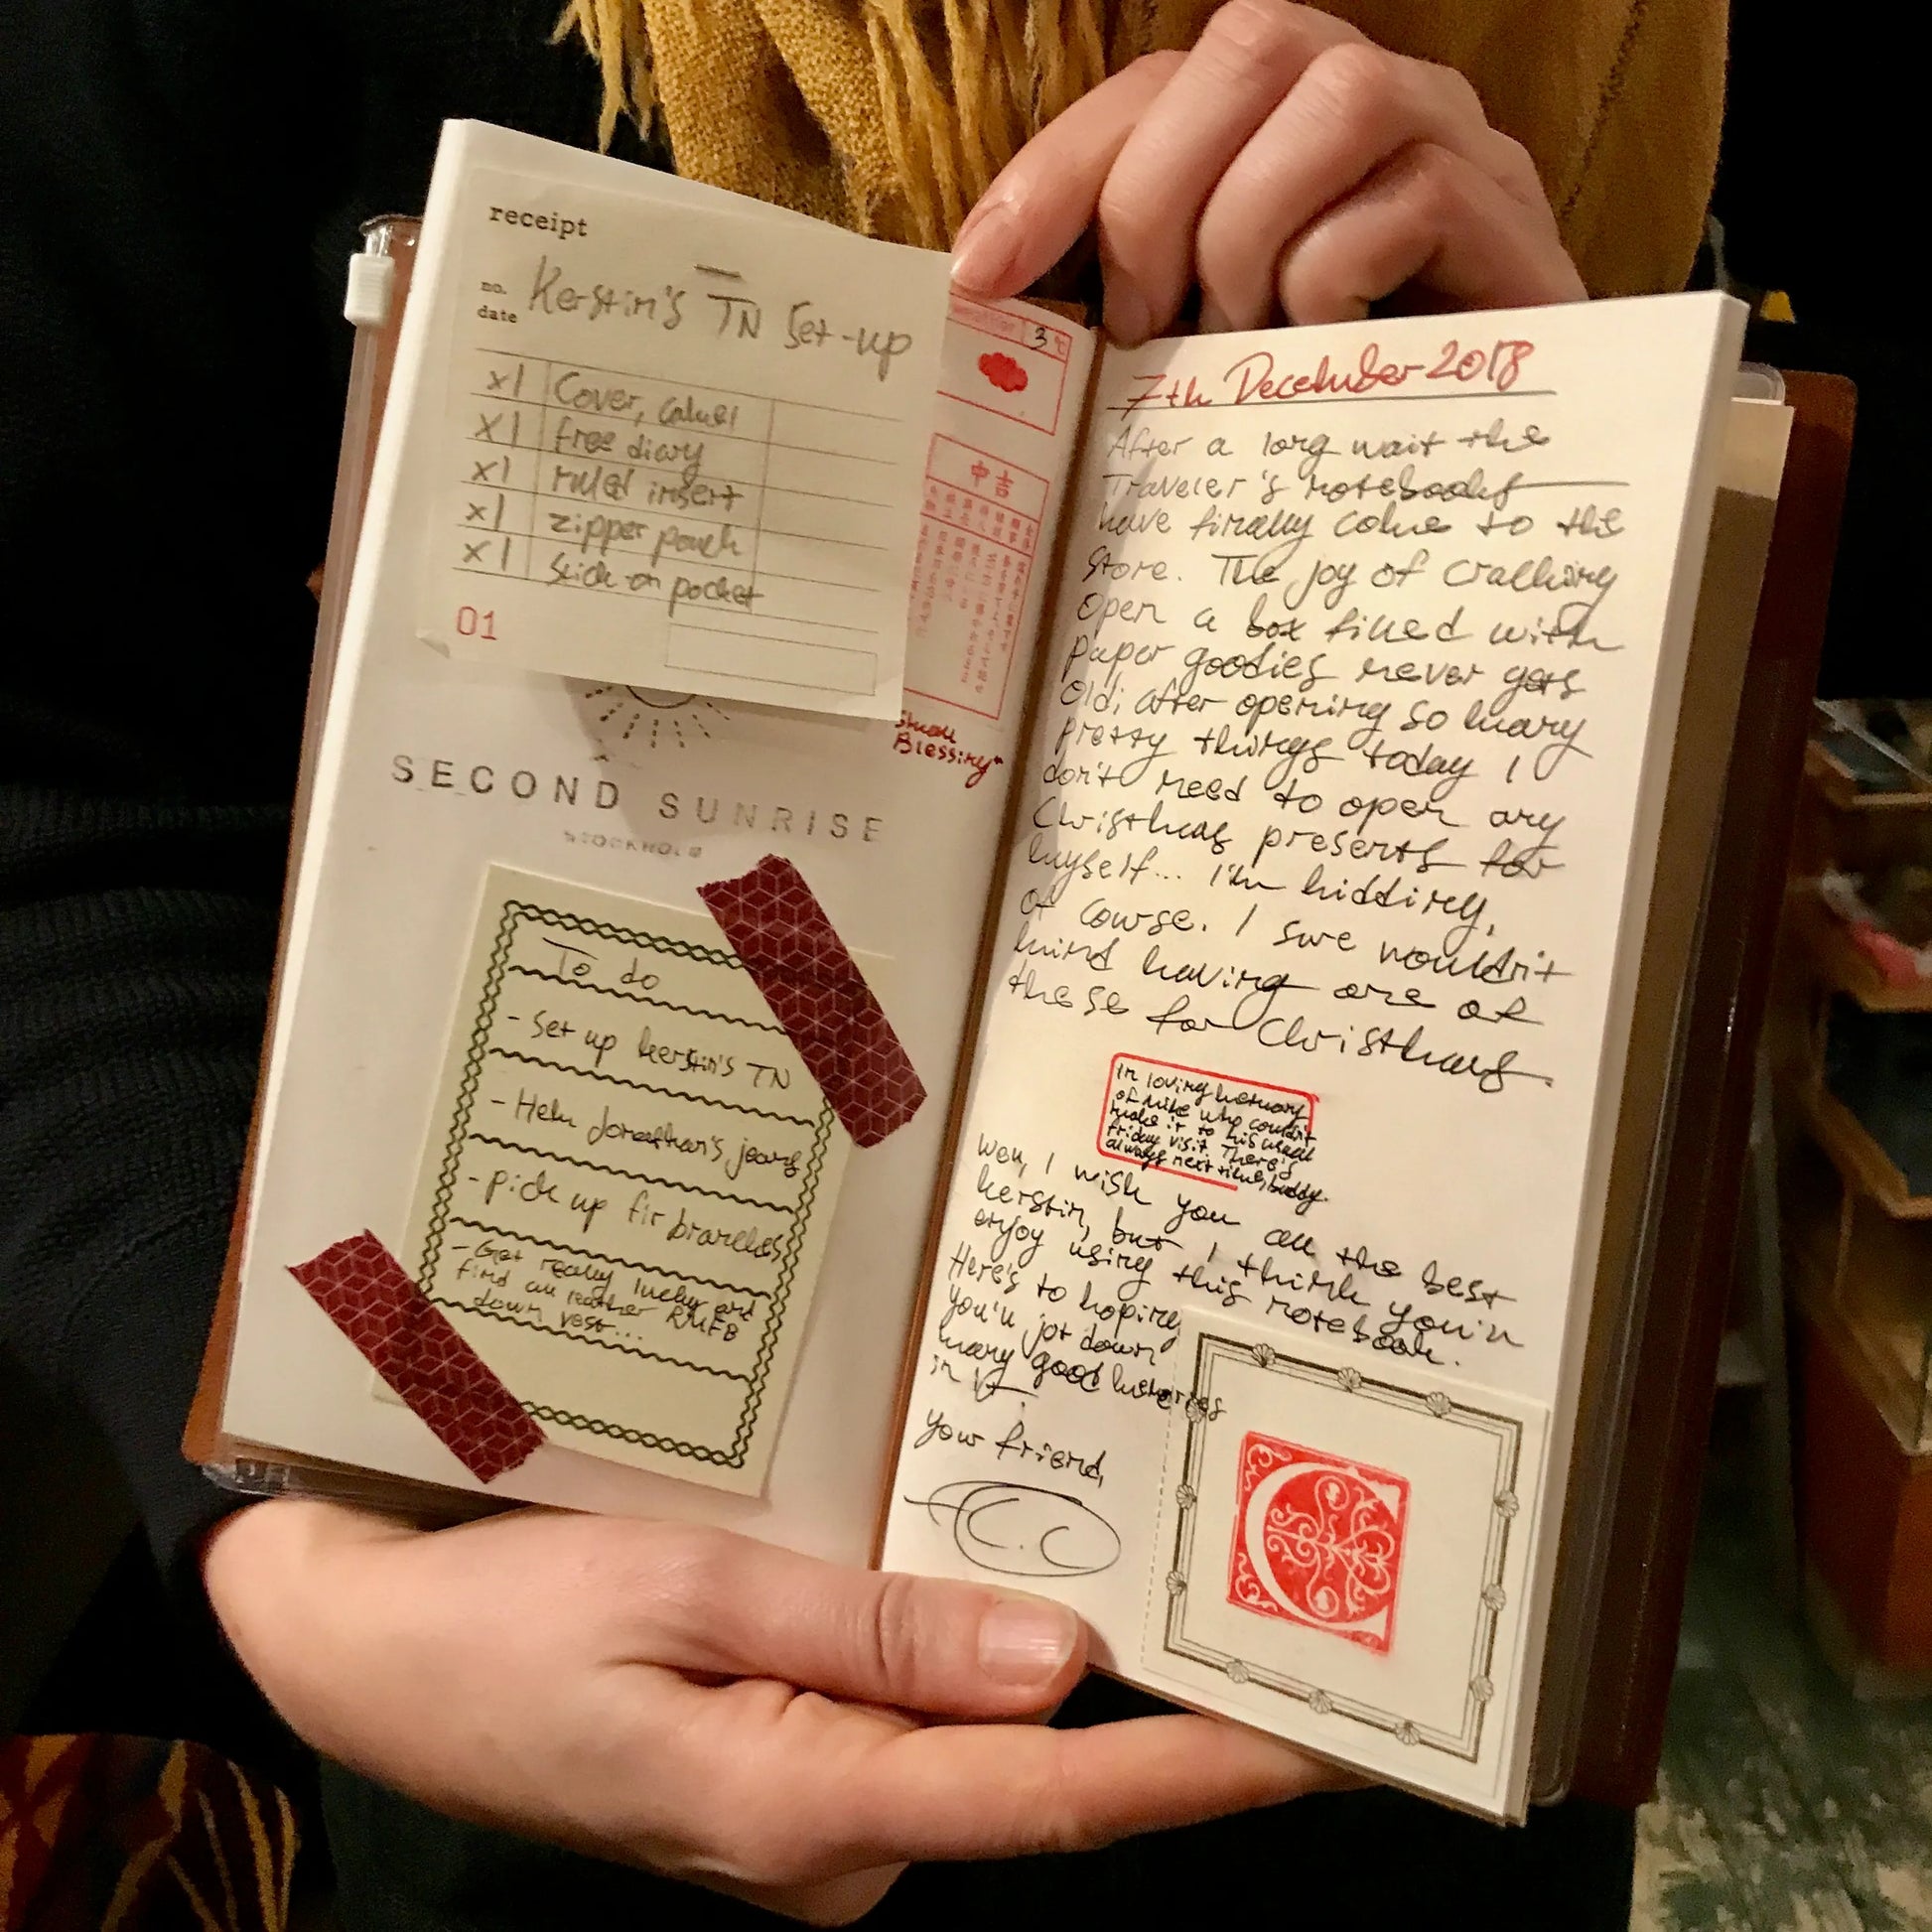 receipt
no.
date
Kerstin's TN Set-up
x1 Cover, camel
x1 free diary
x1 ruled insert
x1 zipper pouch
x1 Stick-on pocket
01
3 ℃
中吉
Small
Blessing"
SECOND SUNRISE
STOCKHOLM
To do
- Set up Kerstin's TN
- Hem Jonathan's jeans
- pick up fir branches
- Get really lucky and
find an leather RMFB
down vest...
7th December 2018
After a long wait the
Traveler's notebooks
have finally come to the
store. The joy of cracking
open a box filled with
paper goodies never gets
old; after opening so many
pretty things today I
don't need to open any
Christmas presents for
myself... I'm kidding,
of course. I sure wouldn't
mind having one of
these for Christmas.
In loving memory
of Mike who couldn't
make it to his usual
friday visit. There's
always next time, buddy.
Well, I wish you all the best
Kerstin, but I think you'll
enjoy using this notebook.
Here's to hoping
you'll jot down
many good memories
in it.
your friend,
C